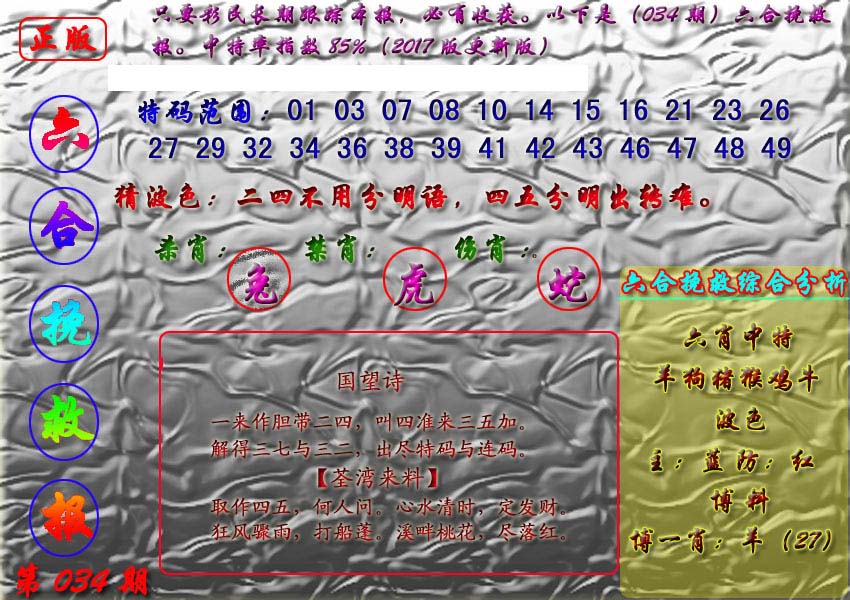 正版
只要彩民长期跟踪本报，必有收获。以下是（034期）六合挽救
报。中特率指数85%（2017版更新版）
六合挽救报
第034期
特码范围：01 03 07 08 10 14 15 16 21 23 26
27 29 32 34 36 38 39 41 42 43 46 47 48 49
猜波色：二四不用分明语，四五分明出转难。
杀肖：兔 禁肖：虎 伤肖：蛇。
国望诗
一来作胆带二四，叫四准来三五加。
解得三七与三二，出尽特码与连码。
【荃湾来料】
取作四五，何人问。心水清时，定发财。
狂风骤雨，打船蓬。溪畔桃花，尽落红。
六合挽救综合分析
六肖中特
羊狗猪猴鸡牛
波色
主：蓝防：红
博料
博一肖：羊（27）